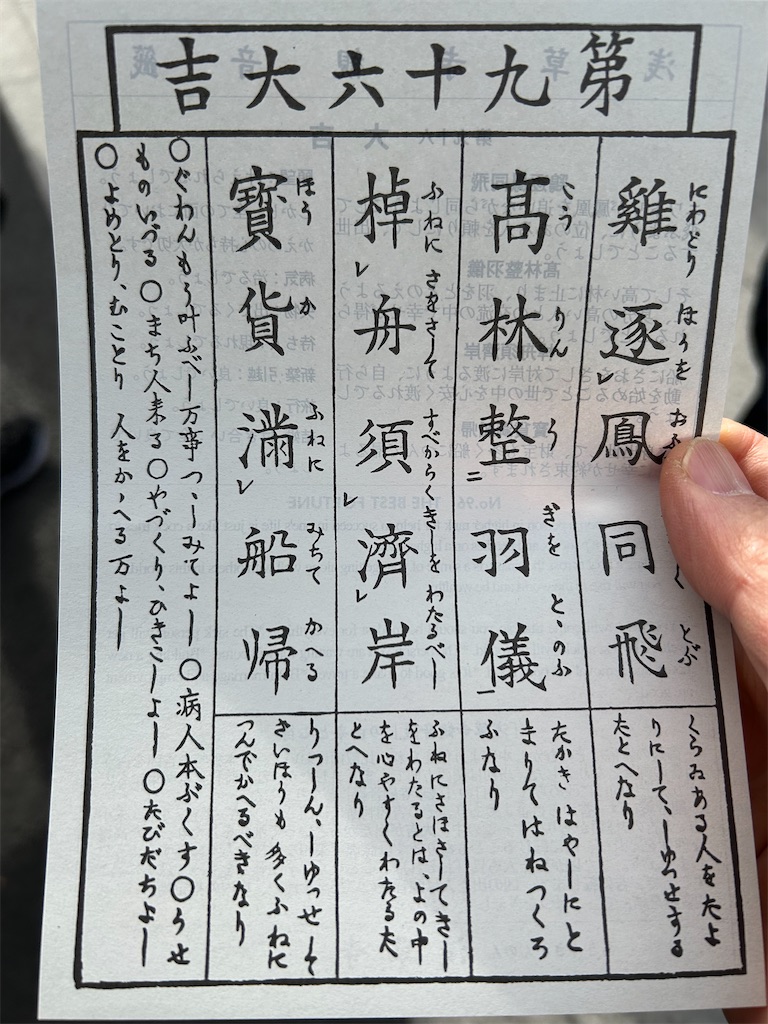 第九十六大吉
にわとり ほうを とぶ
雞逐レ鳳同飛
くらゐある人をたよ
りにして、しゆつせする
たとへなり
こう りん う ぎを とゝのふ
髙林整二羽儀一
たかき はやしにと
まりてはねつくろ
ふなり
ふねに さをさして すべからくきしを わたるべし
棹レ舟須レ濟レ岸
ふねにさほさしてきし
をわたるとは、よの中
を心やすくわたるた
とへなり
ほう か ふねに みちて かへる
寶貨滿レ船帰
りつしん、しゆつせ そ
さいほうも 多くふねに
つんでかへるべきなり
〇ぐわんもう叶ふべし 万事つゝしみてよし 〇病人本ぶくす〇うせ
ものいづる〇まち人来る〇やづくり、ひきこしよし〇たびだちよし
〇よめとり、むことり 人をかゝへる万よし